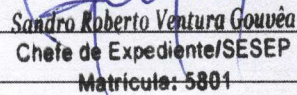 Sandro Roberto Ventura Gouvêa
Chefe de Expediente/SESEP
Matrícula: 5801